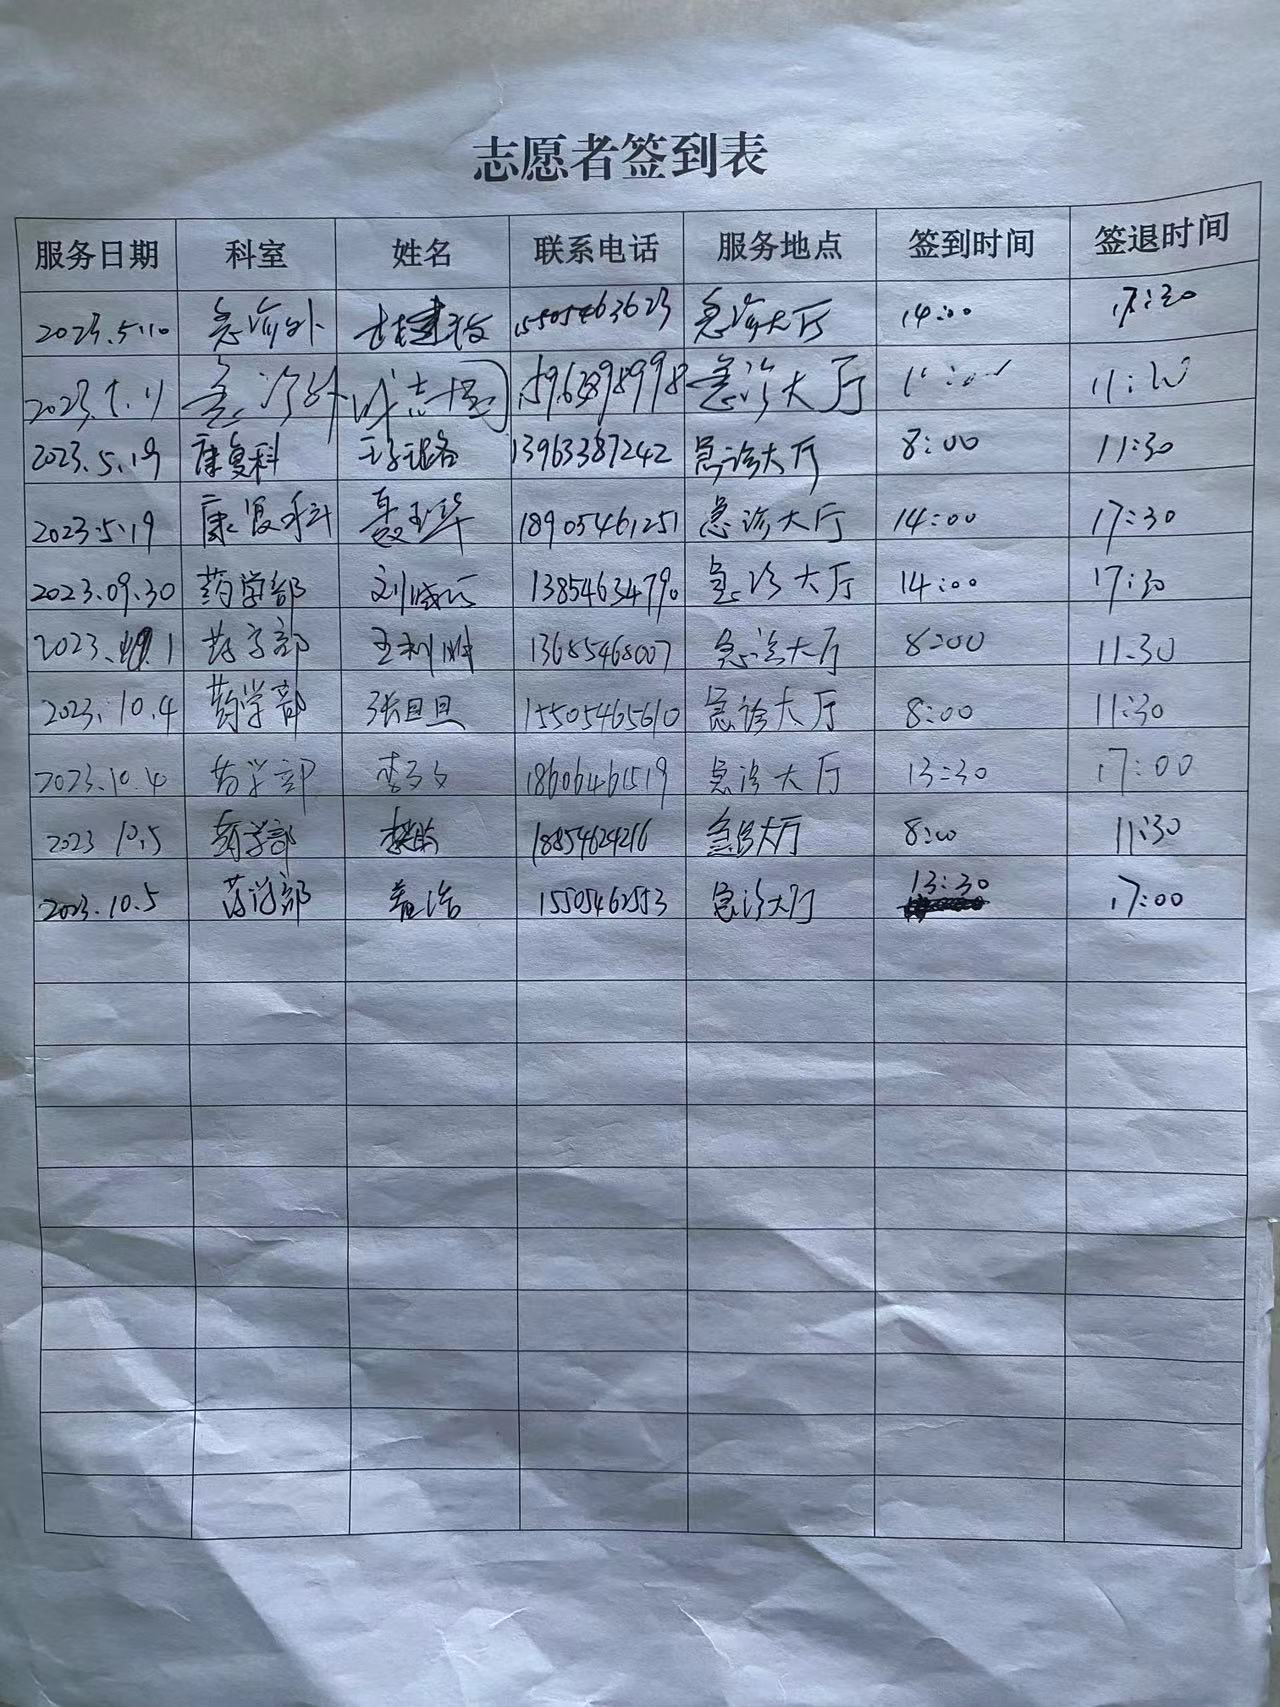 志愿者签到表
服务日期 科室 姓名 联系电话 服务地点 签到时间 签退时间
2023.5.10 急诊外 15505463623 急诊大厅 14:00 17:30
2023.5.11 急诊外 15963898998 急诊大厅
2023.5.19 康复科 13963387242 急诊大厅 8:00 11:30
2023.5.19 康复科 聂玉华 18905461251 急诊大厅 14:00 17:30
2023.09.30 药学部 13854634790 急诊大厅 14:00 17:30
药学部 王利明 13685468007 急诊大厅 8:00 11:30
2023.10.4 药学部 张旦旦 15505465610 急诊大厅 8:00 11:30
2023.10.4 药学部 李文文 18606461519 急诊大厅 13:30 17:00
2023 10.5 药学部 18854624216 急诊大厅 8:00 11:30
2023.10.5 药学部 15505462553 急诊大厅 13:30 17:00